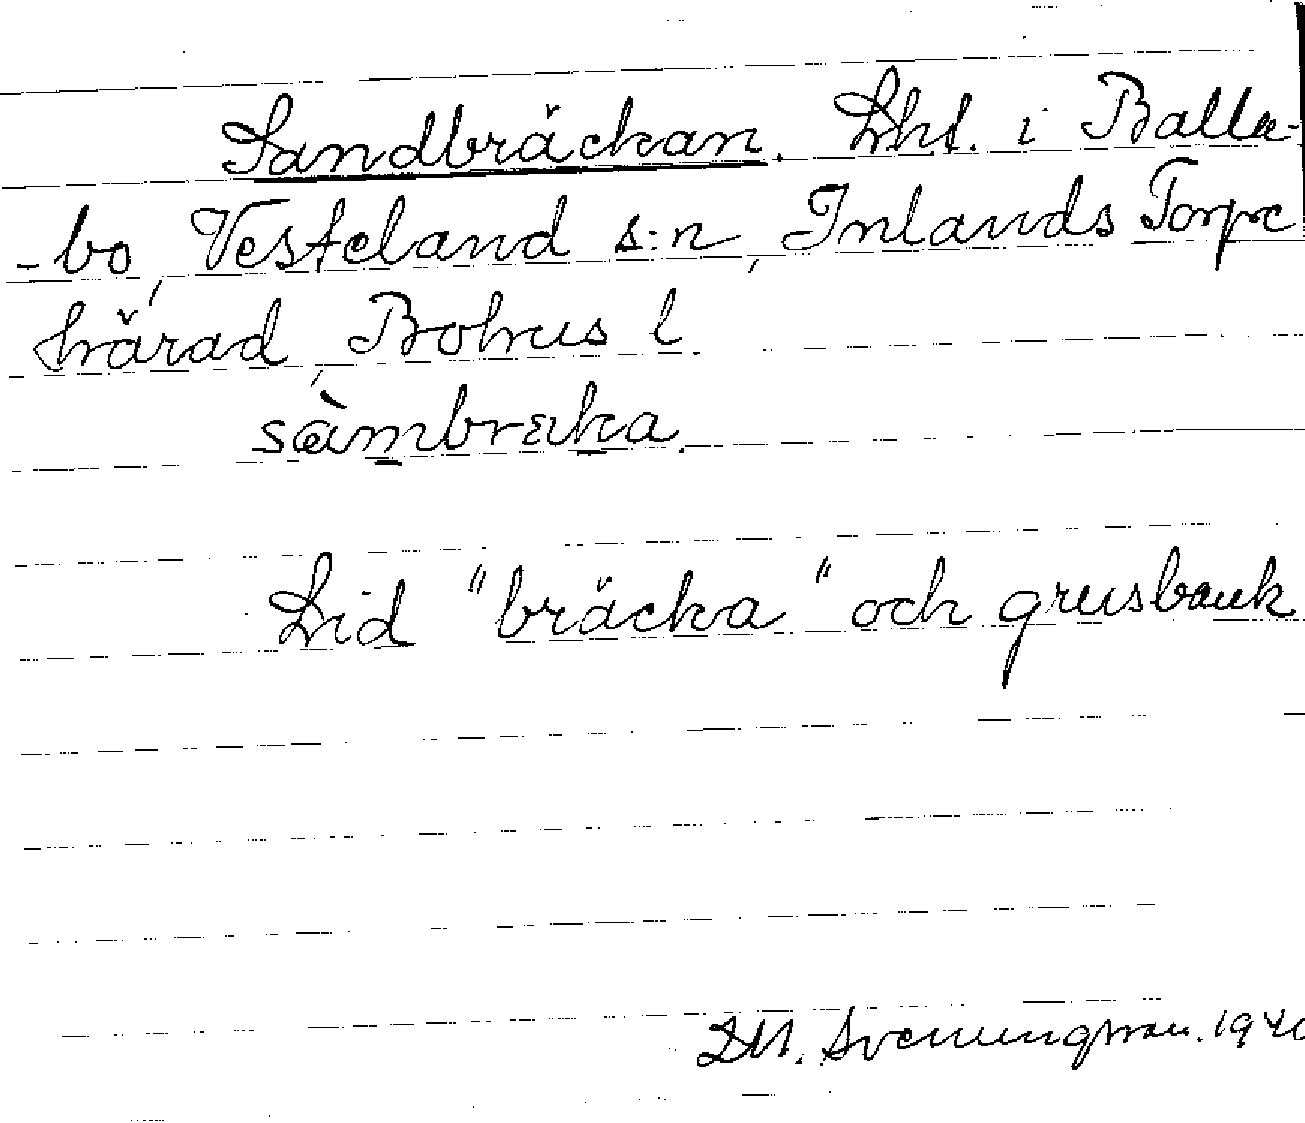 Sandbräckan. Lht. i Balla-
-bo, Vesterland s:n, Inlands Torpe
härad, Bohus l.
sàmbræka.
Lid "bräcka" och grusbank
D.M. Svenungsson. 1940